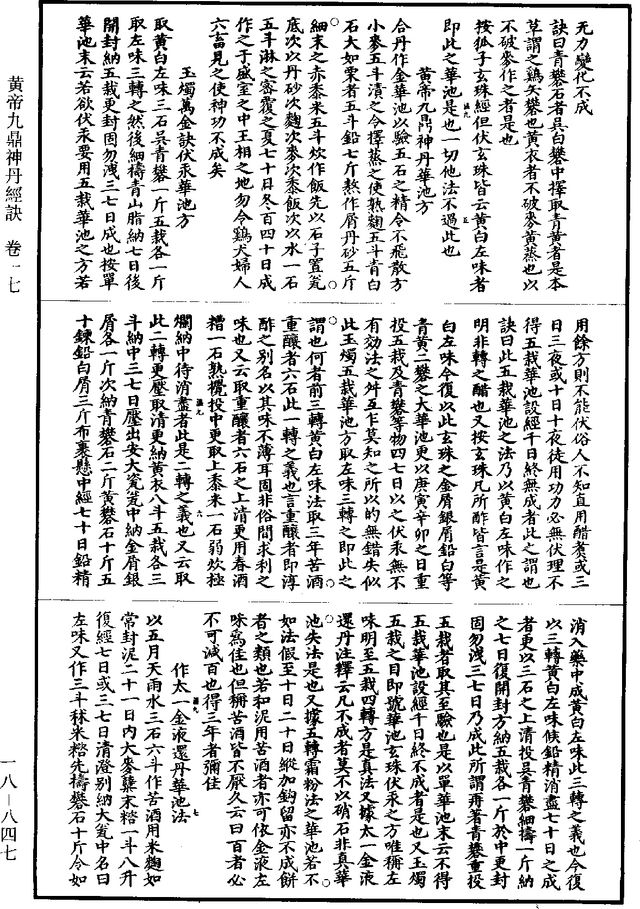 黄帝九鼎神丹經訣 卷一七
一八—八四七
无力變化不成
訣曰青礬石者吳白礬中擇取青黄者是本
草謂之鷄矢礬也黄衣者不破麥黄蒸也以
不破麥作之者是也
按狐子玄珠經但伏玄珠皆云黄白左味者
即此之華池是也一切他法不過此也
黄帝九鼎神丹華池方
合丹作金華池以驗五石之精令不飛散方
小麥五斗漬之令擇蒸之使熟麴五斗青白
石大如栗者五斗鉛七斤熬作屑丹砂五斤
細末之赤黍米五斗炊作飯先以石子置瓮
底次以丹砂次麴次麥次黍飯次以水一石
五斗淋之密覆之夏七十日冬百四十日成
作之于盛室之中王相之地勿令鷄犬婦人
六畜見之使神功不成矣
玉燭萬金訣伏汞華池方
取黄白左味三石吳青礬一斤五栽各一斤
取左味三轉之然後細禱青山脂納七日後
開封納五栽更封固勿洩三七日成也按單
華池末云若欲伏汞要用五栽華池之方若
用餘方則不能伏俗人不知直用醋煑或三
日三夜或十日十夜徒用功力必無伏理不
得五栽華池設經千日終無成者此之謂也
訣曰此五栽華池之法乃以黄白左味作之
明非轉之醋也又按玄珠凡所酢皆言是黄
白左味令復以此玄珠之金屑銀屑鉛白等
青黄二礬之大華池更以庚寅辛卯之日重
投五栽及青礬等物四七日以之伏汞無不
有効法之舛互乍莫知之所以的無錯失似
此玉燭五栽華池方取左味三轉之即此之
謂也何者前三轉黄白左味法取三年苦酒
重釀者六石此一轉之義也言重釀者即淳
酢之别名以其味不薄耳固非俗間求利之
味也又云取重釀者六石之上清更用春酒
糟一石熟攪投中更取上黍米一石弱炊極
爛納中待消盡者此是二轉之義也又云取
此二轉更壓取清更納黄衣八斗五栽各三
斗納中三七日壓出安大瓮甕中納金屑銀
屑各一斤次納青礬石二斤黄礬石十斤五
十鍊鉛白屑三斤布裹懸中經七十日鉛精
消入藥中成黄白左味此三轉之義也今復
以三轉黄白左味候鉛精消盡七十日之成
者更以三石之上清投吳青礬細禱一斤納
之七日復開封方納五栽各一斤於中更封
固勿洩三七日乃成此所謂再著青礬重投
五栽者取其至驗也是以單華池末云不得
五栽華池設經千日終不成者是也又玉燭
五栽之目即號華池玄珠伏汞之方唯稱左
味明至五栽四轉方是真法又據太一金液
還丹注釋云凡不成者莫不以硝石非真華
池失法是也又據五轉霜粉法之華池若不
如法假至十日二十日縱加鈎留亦不成餅
者之類也若和泥用苦酒者亦可依金液左
味寫佳也但稱苦酒皆不厭久云曰百者必
不可減百也得三年者彌佳
作太一金液還丹華池法
以五月天雨水三石六斗作苦酒用米麴如
常封泥二十一日内大麥糵末㮶一斗八升
復經七日或三七日清澄别納大瓮中名曰
左味又作三斗秣米㮶先禱礬石十斤令如